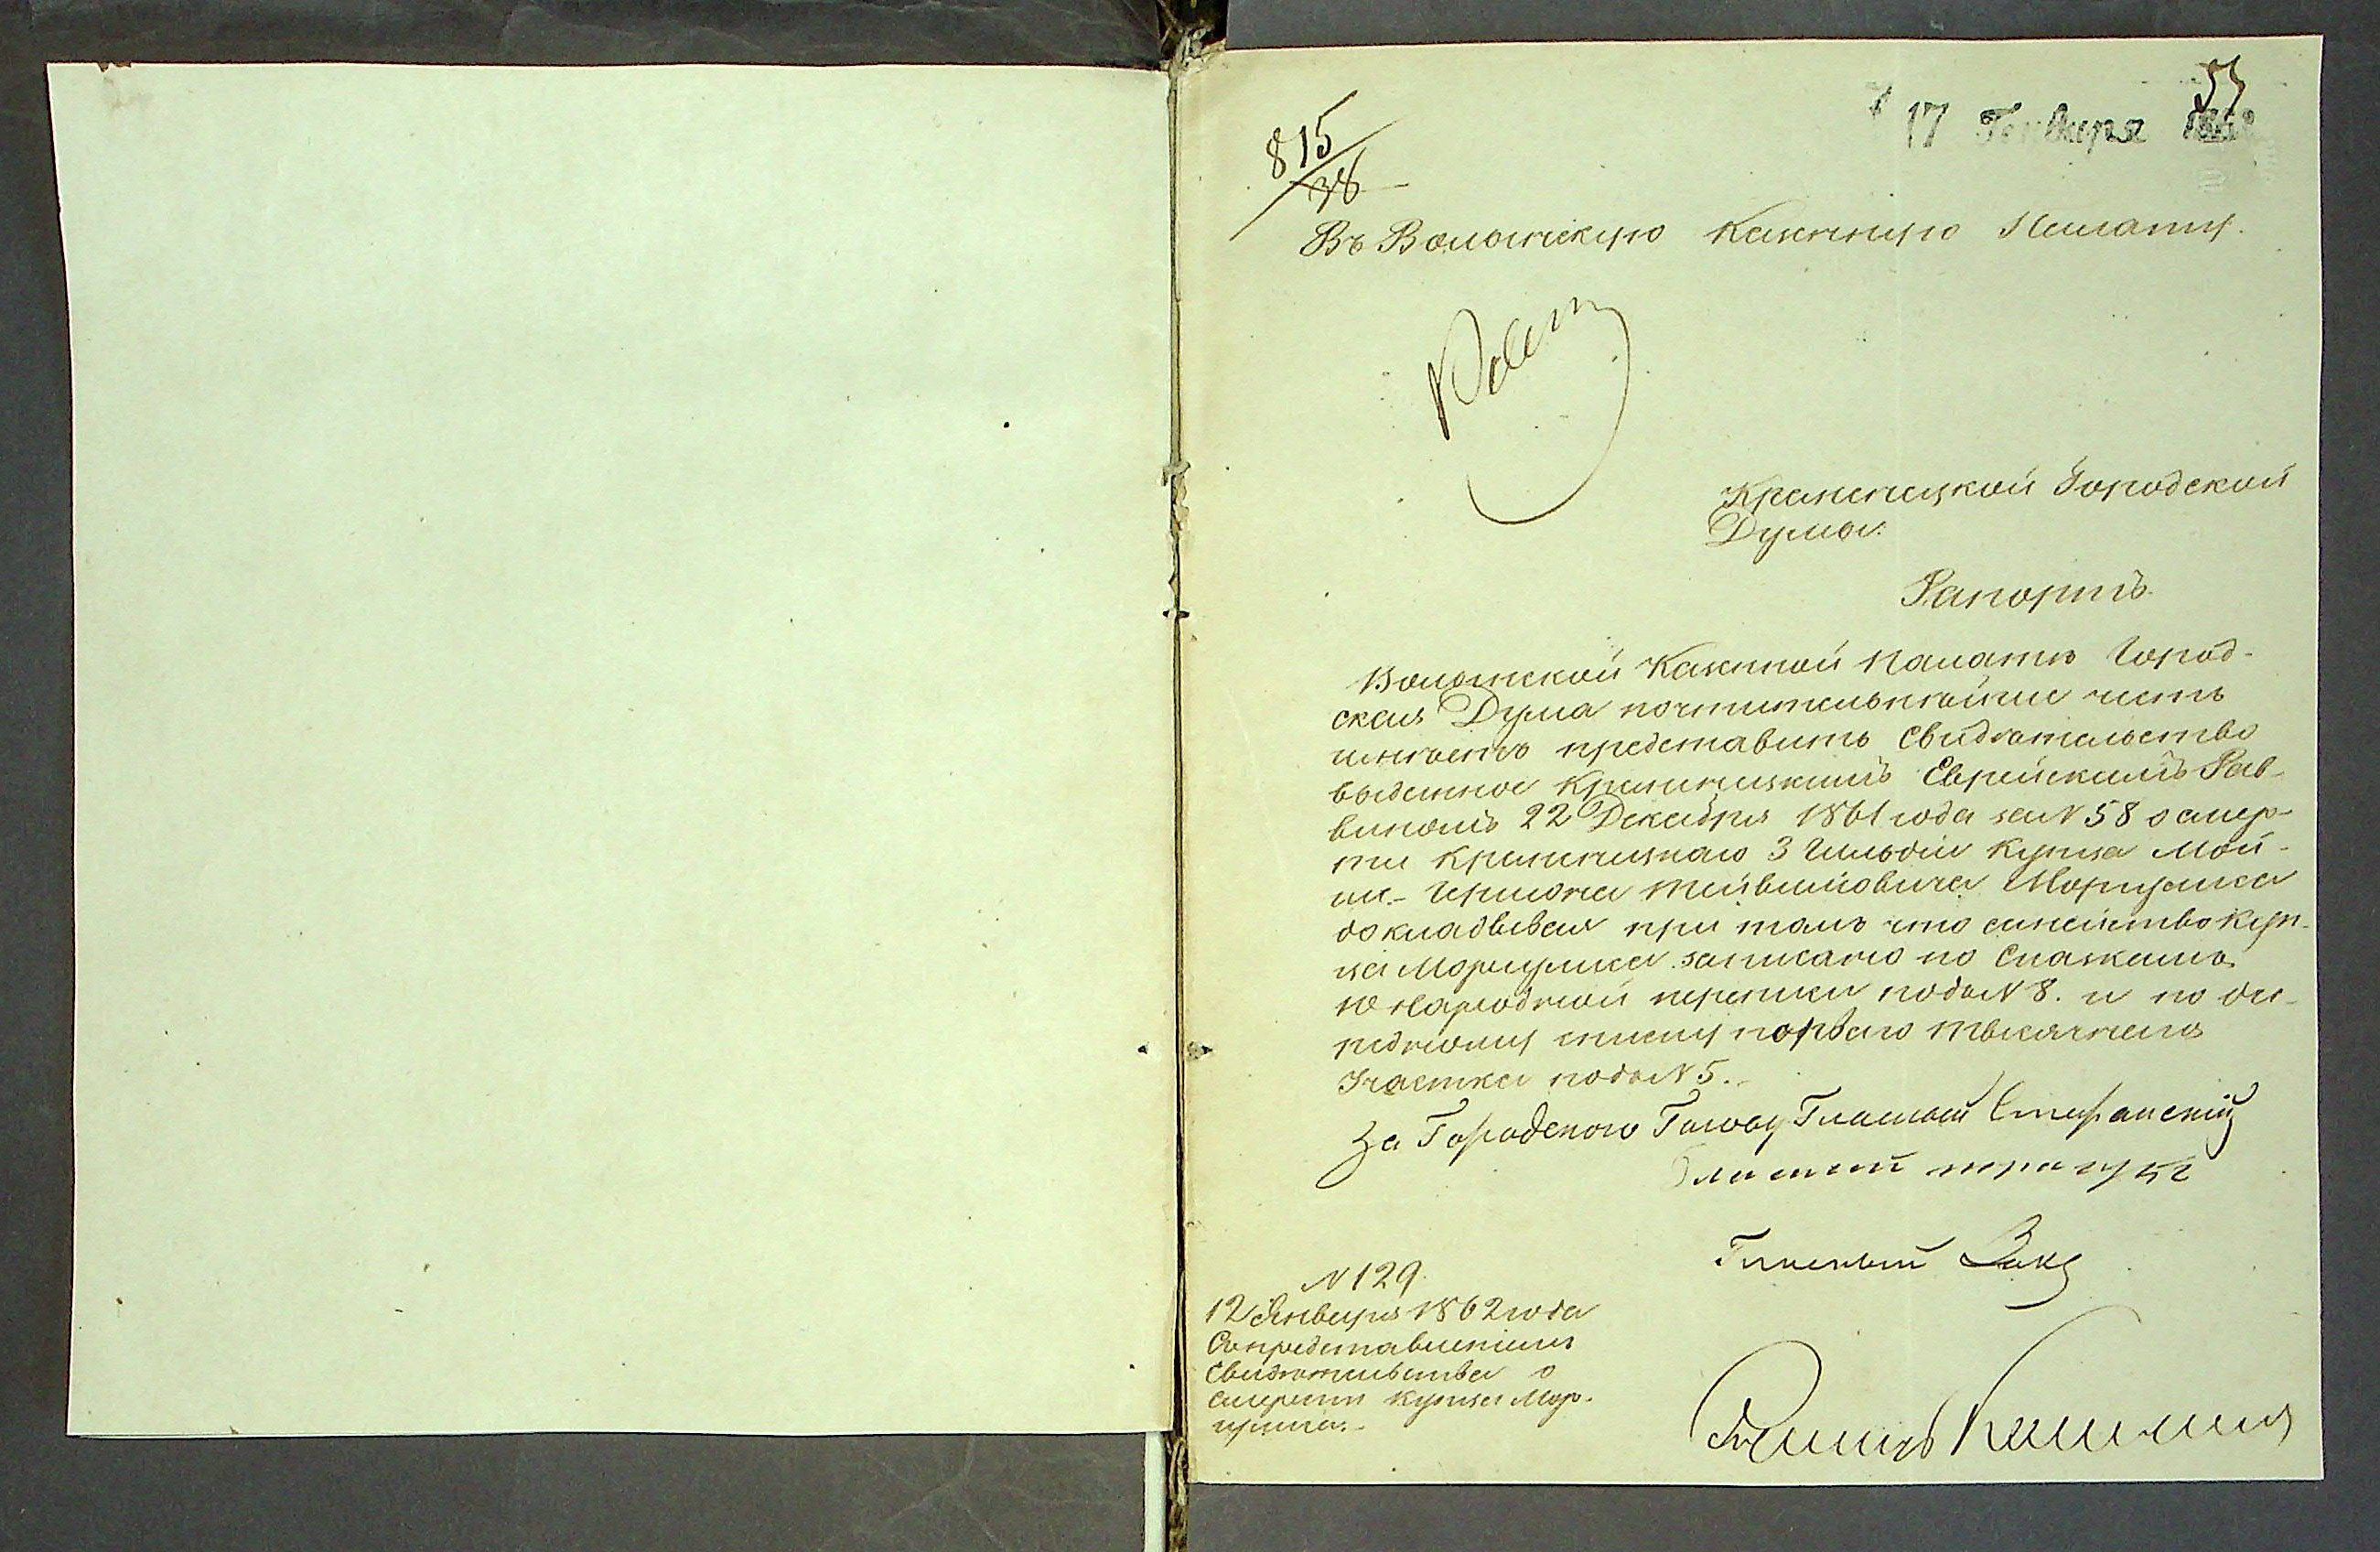 53
17 Генваря 1862
815
38
Въ Волынскую Казенную Палату.
Кременецкой Городской
Думы.
Рапортъ.
Волынской Казенной Палатѣ Город-
ская Дума почтительнѣйше честь
имѣетъ представить свидѣтельство
выданное Кременецкимъ Еврейскимъ Рав-
виномъ 22 Декабря 1861 года за N 58 о смер-
ти Кременецкаго 3 Гильдіи Купца Мош-
ка Мorгулиса
докладывая при томъ что семейство Куп-
ца Моргулиса записано по Сказкамъ
10 Народной переписи подъ N 8. и по оче-
редному списку перваго тысячнаго
Участка подъ N 5.
За Городского Голову Гласный
Гласный
Гласный Закс
N 129
12 Января 1862 года
Съ представленіемъ
Свидѣтельства о
смерти Купца Мор-
гулиса.